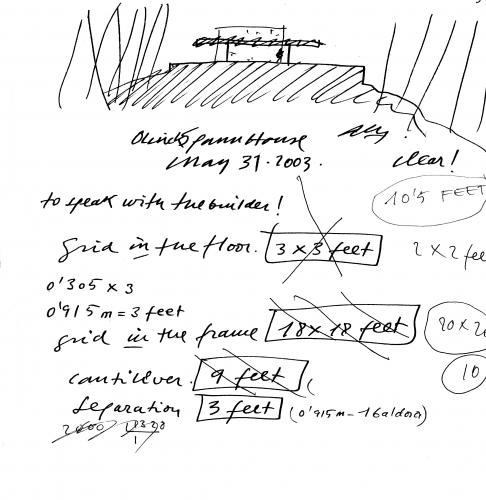 Olnick Spanu House
May 31·2003.
clear!
10'5 FEET
to speak with the builder!
grid in the floor. 3 x 3 feet 2 x 2 fee
0'305 x 3
0'915 m = 3 feet
grid in the frame 18 x 18 feet 20 x 20
cantilever. 9 feet 10
Separation 3 feet (0'915m -